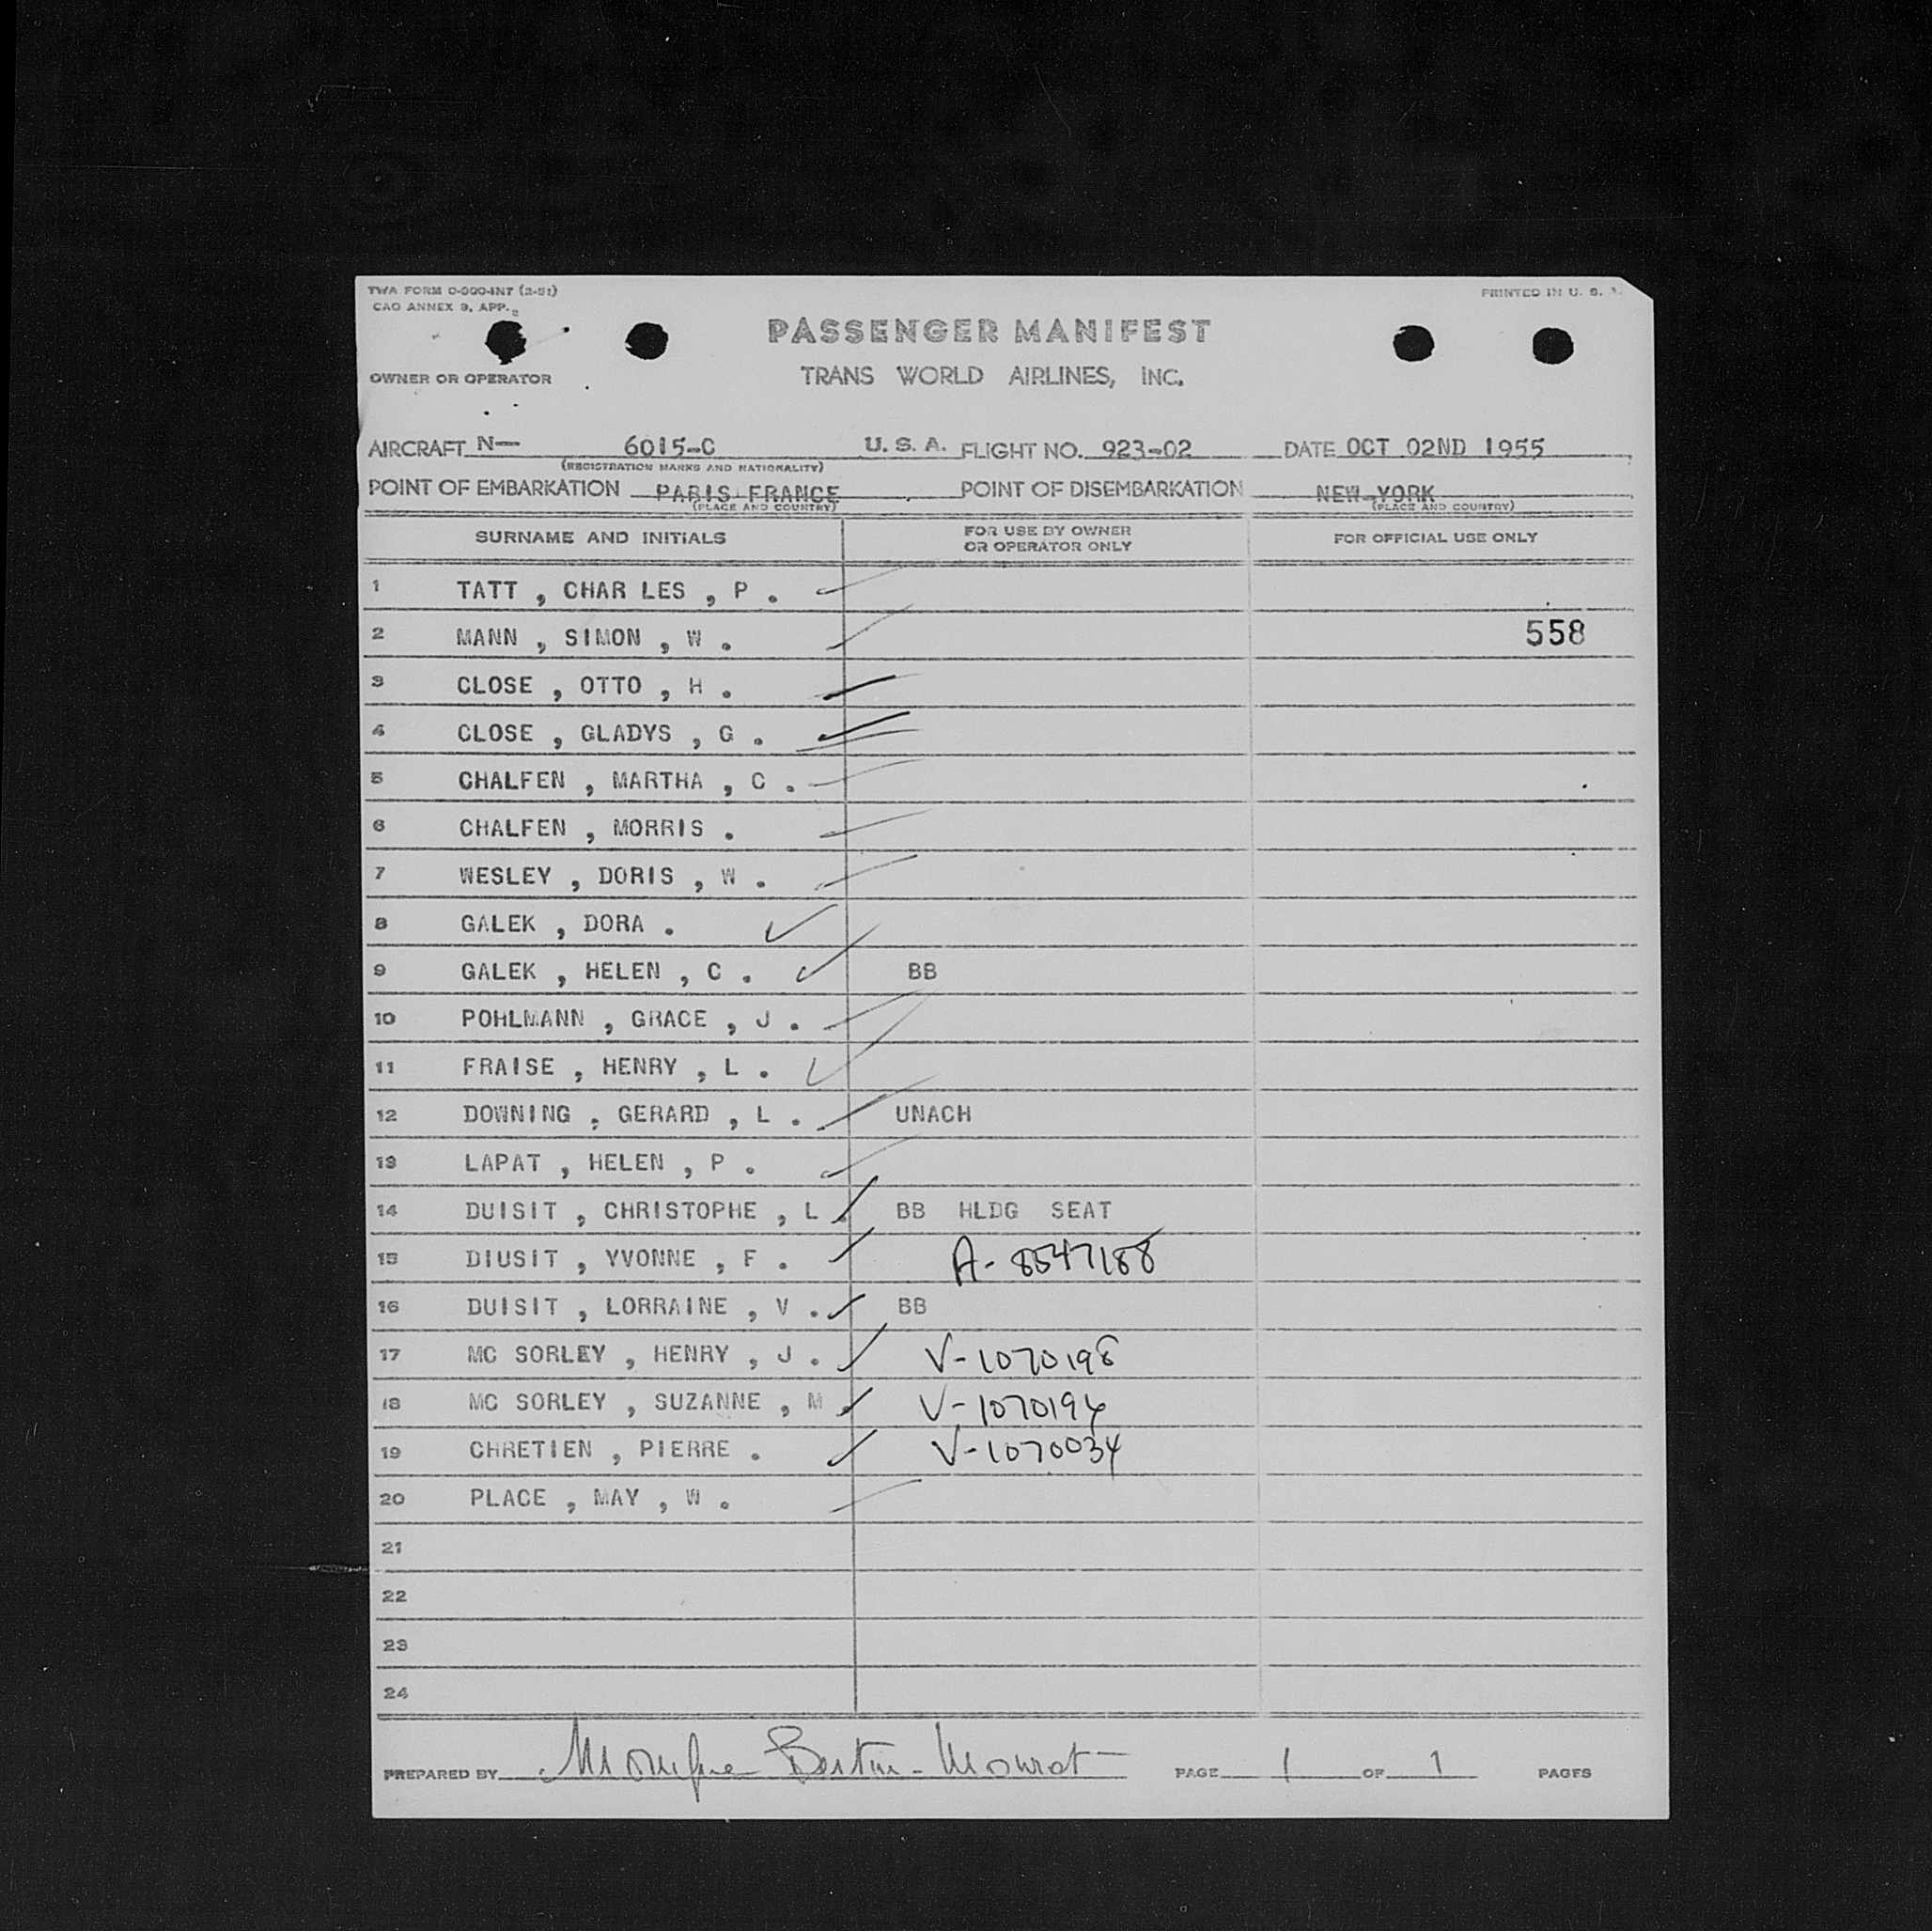 TWA FORM C-300-INT (2-51)
CAO ANNEX 9, APP.
PRINTED IN U. S.
PASSENGER MANIFEST
OWNER OR OPERATOR
TRANS WORLD AIRLINES, INC.
AIRCRAFT N— 6015-C U. S. A. FLIGHT NO. 923-02 DATE OCT 02ND 1955
(REGISTRATION MARKS AND NATIONALITY)
POINT OF EMBARKATION PARIS FRANCE POINT OF DISEMBARKATION NEW-YORK
(PLACE AND COUNTRY) (PLACE AND COUNTRY)
SURNAME AND INITIALS FOR USE BY OWNER OR OPERATOR ONLY FOR OFFICIAL USE ONLY
1 TATT , CHAR LES , P .
2 MANN , SIMON , W . 558
3 CLOSE , OTTO , H .
4 CLOSE , GLADYS , G .
5 CHALFEN , MARTHA , C .
6 CHALFEN , MORRIS .
7 WESLEY , DORIS , W .
8 GALEK , DORA .
9 GALEK , HELEN , C . BB
10 POHLMANN , GRACE , J .
11 FRAISE , HENRY , L .
12 DOWNING , GERARD , L . UNACH
13 LAPAT , HELEN , P .
14 DUISIT , CHRISTOPHE , L . BB HLDG SEAT
15 DIUSIT , YVONNE , F . A- 8547188
16 DUISIT , LORRAINE , V . BB
17 MC SORLEY , HENRY , J . V-1070198
18 MC SORLEY , SUZANNE , M . V-1070194
19 CHRETIEN , PIERRE . V-1070034
20 PLACE , MAY , W .
21
22
23
24
PREPARED BY Monique Bertin-Mourot PAGE 1 OF 1 PAGES